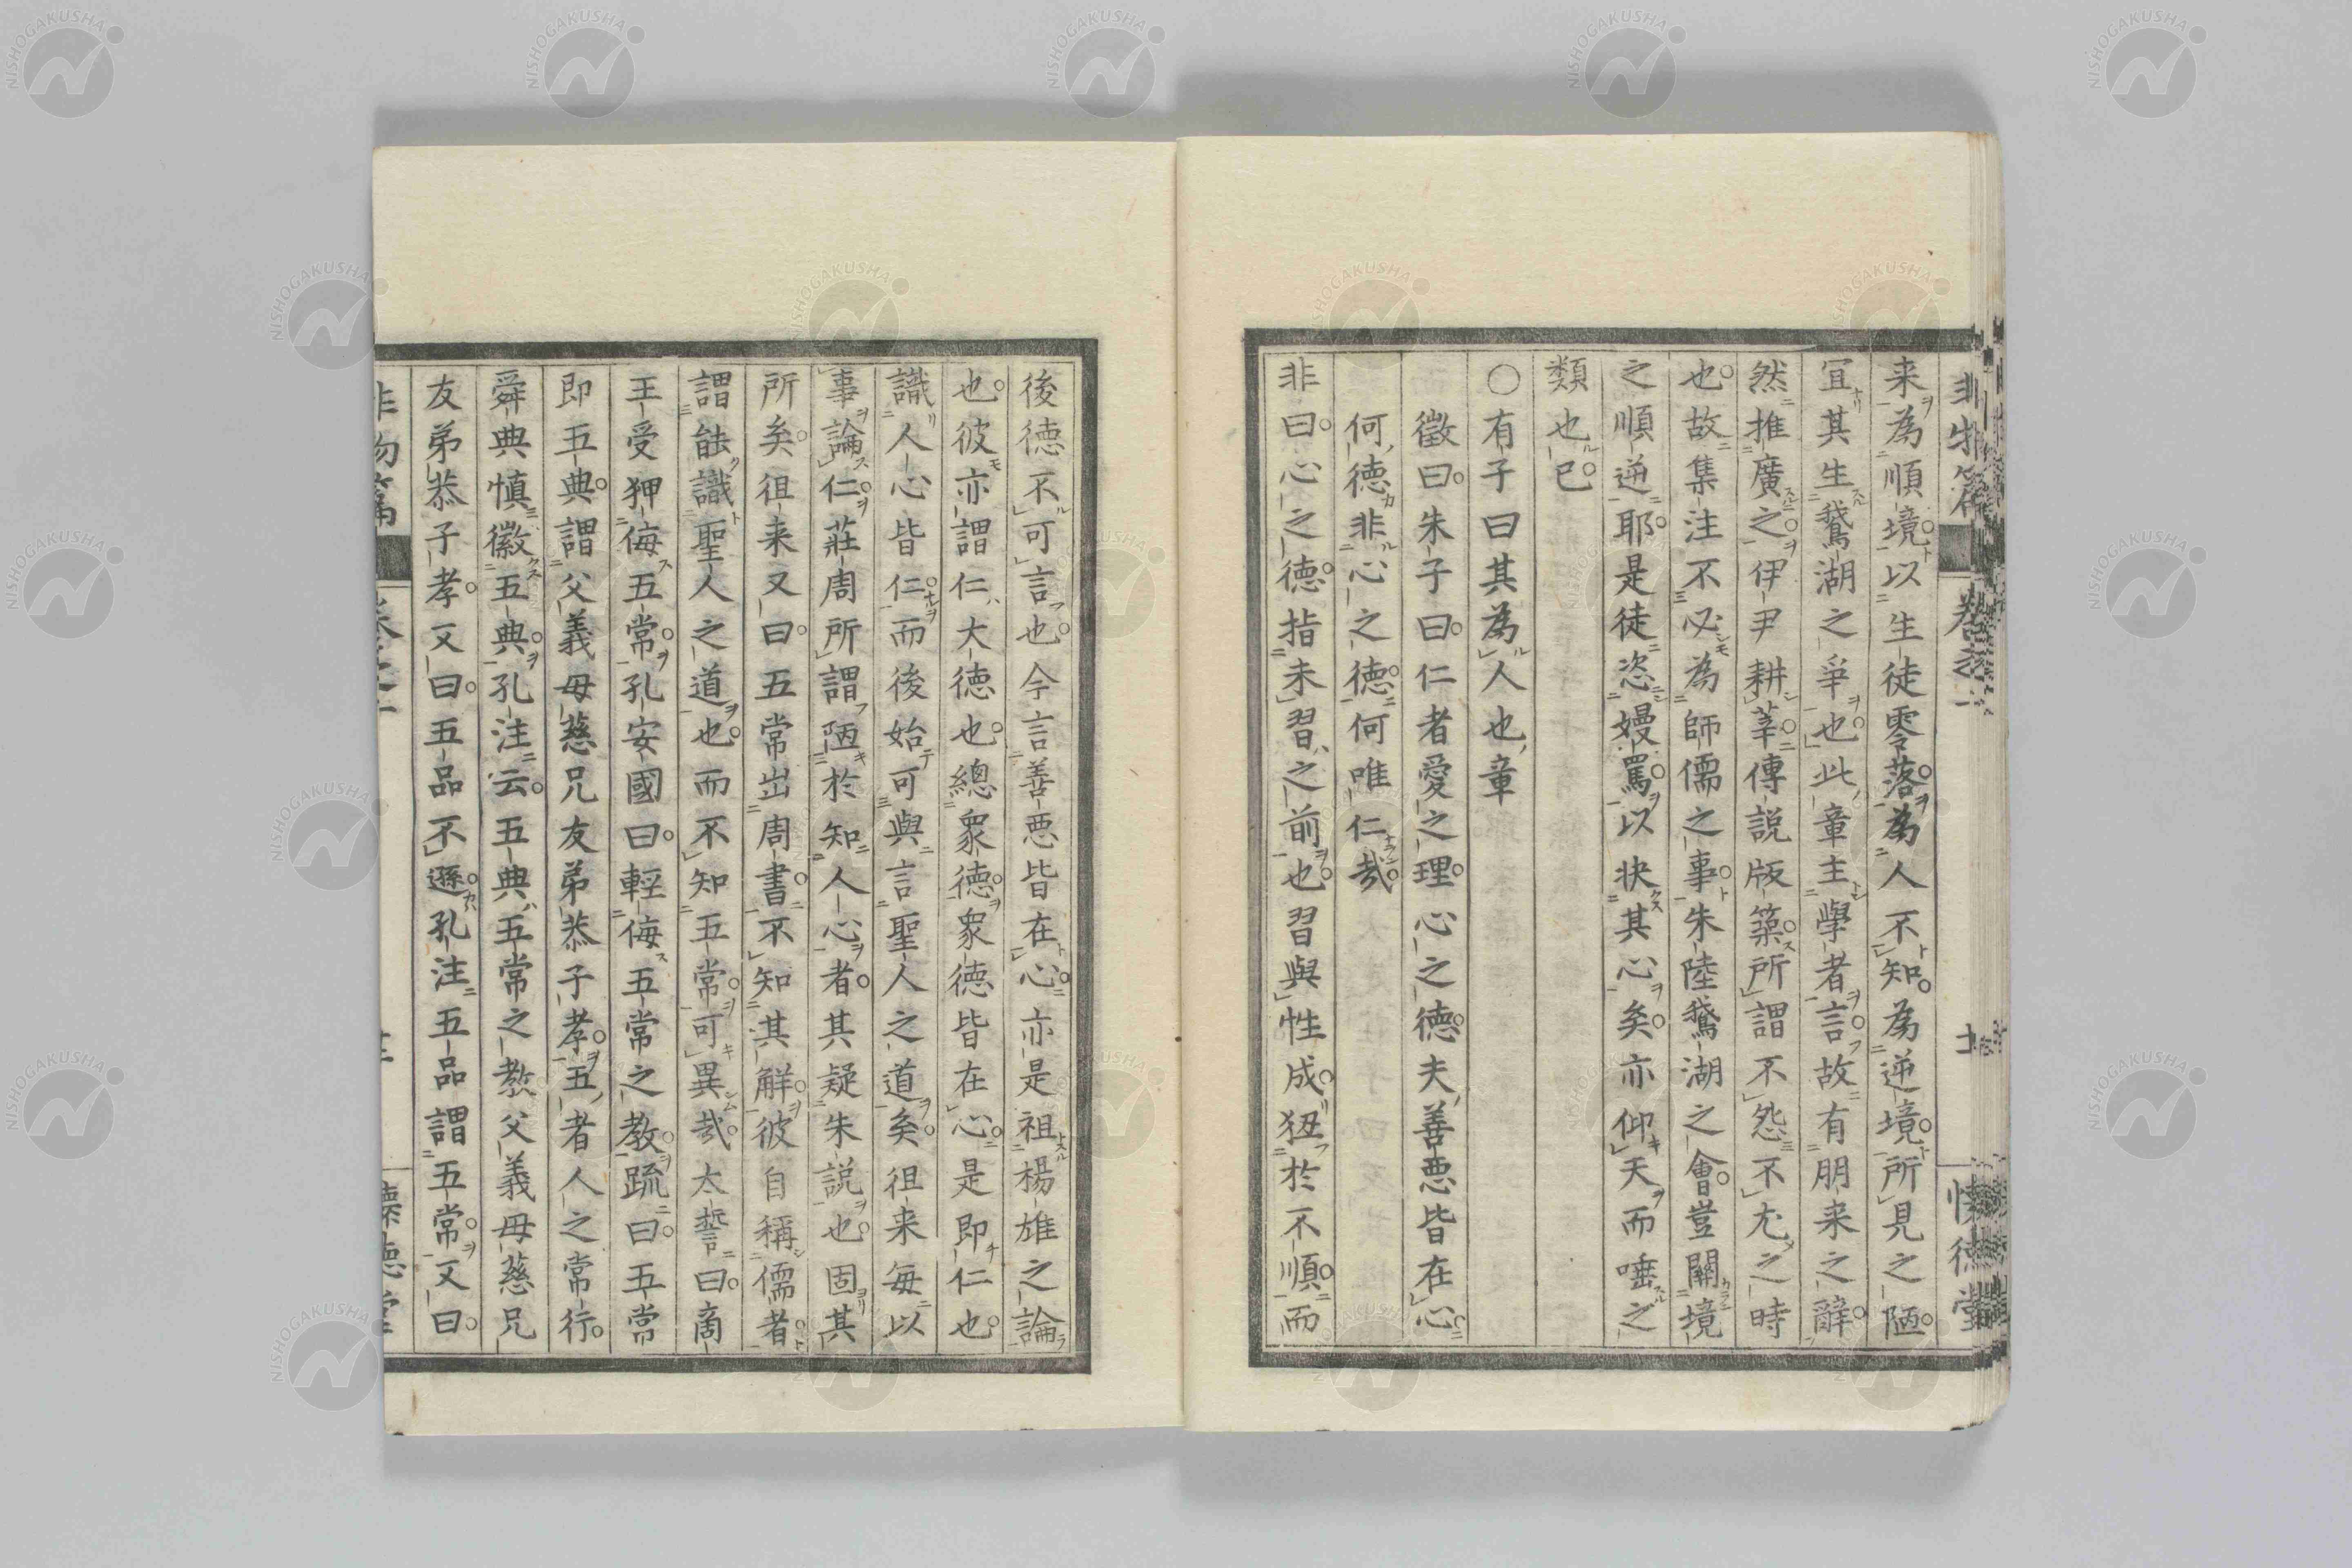 来為順境以生徒零落為人不知為逆境所見之陋
宜其生鵞湖之爭也此章主學者言故有朋来之辭
然推廣之伊尹耕莘傅説版築所謂不怨不尤之時
也故集注不必為師儒之事朱陸鵞湖之會豈關境
之順逆耶是徒恣嫚罵以快其心矣亦仰天而唾之
類也已
○有子曰其為人也章
徵曰朱子曰仁者愛之理心之德夫善惡皆在心
何德非心之德何唯仁哉
非曰心之德指未習之前也習與性成狃於不順而
後德不可言也今言善惡皆在心亦是祖楊雄之論
也彼亦謂仁大德也總衆德衆德皆在心是即仁也
識人心皆仁而後始可與言聖人之道矣徂来毎以
事論仁莊周所謂陋於知人心者其疑朱説也固其
所矣徂来又曰五常出周書不知其解彼自稱儒者
謂能識聖人之道也而不知五常可異哉太誓曰商
王受狎侮五常孔安國曰輕侮五常之教疏曰五常
即五典謂父義母慈兄友弟恭子孝五者人之常行
舜典慎徽五典孔注云五典五常之教父義母慈兄
友弟恭子孝又曰五品不遜孔注五品謂五常又曰
非物篇
懷德堂
NISHOGAKUSHA